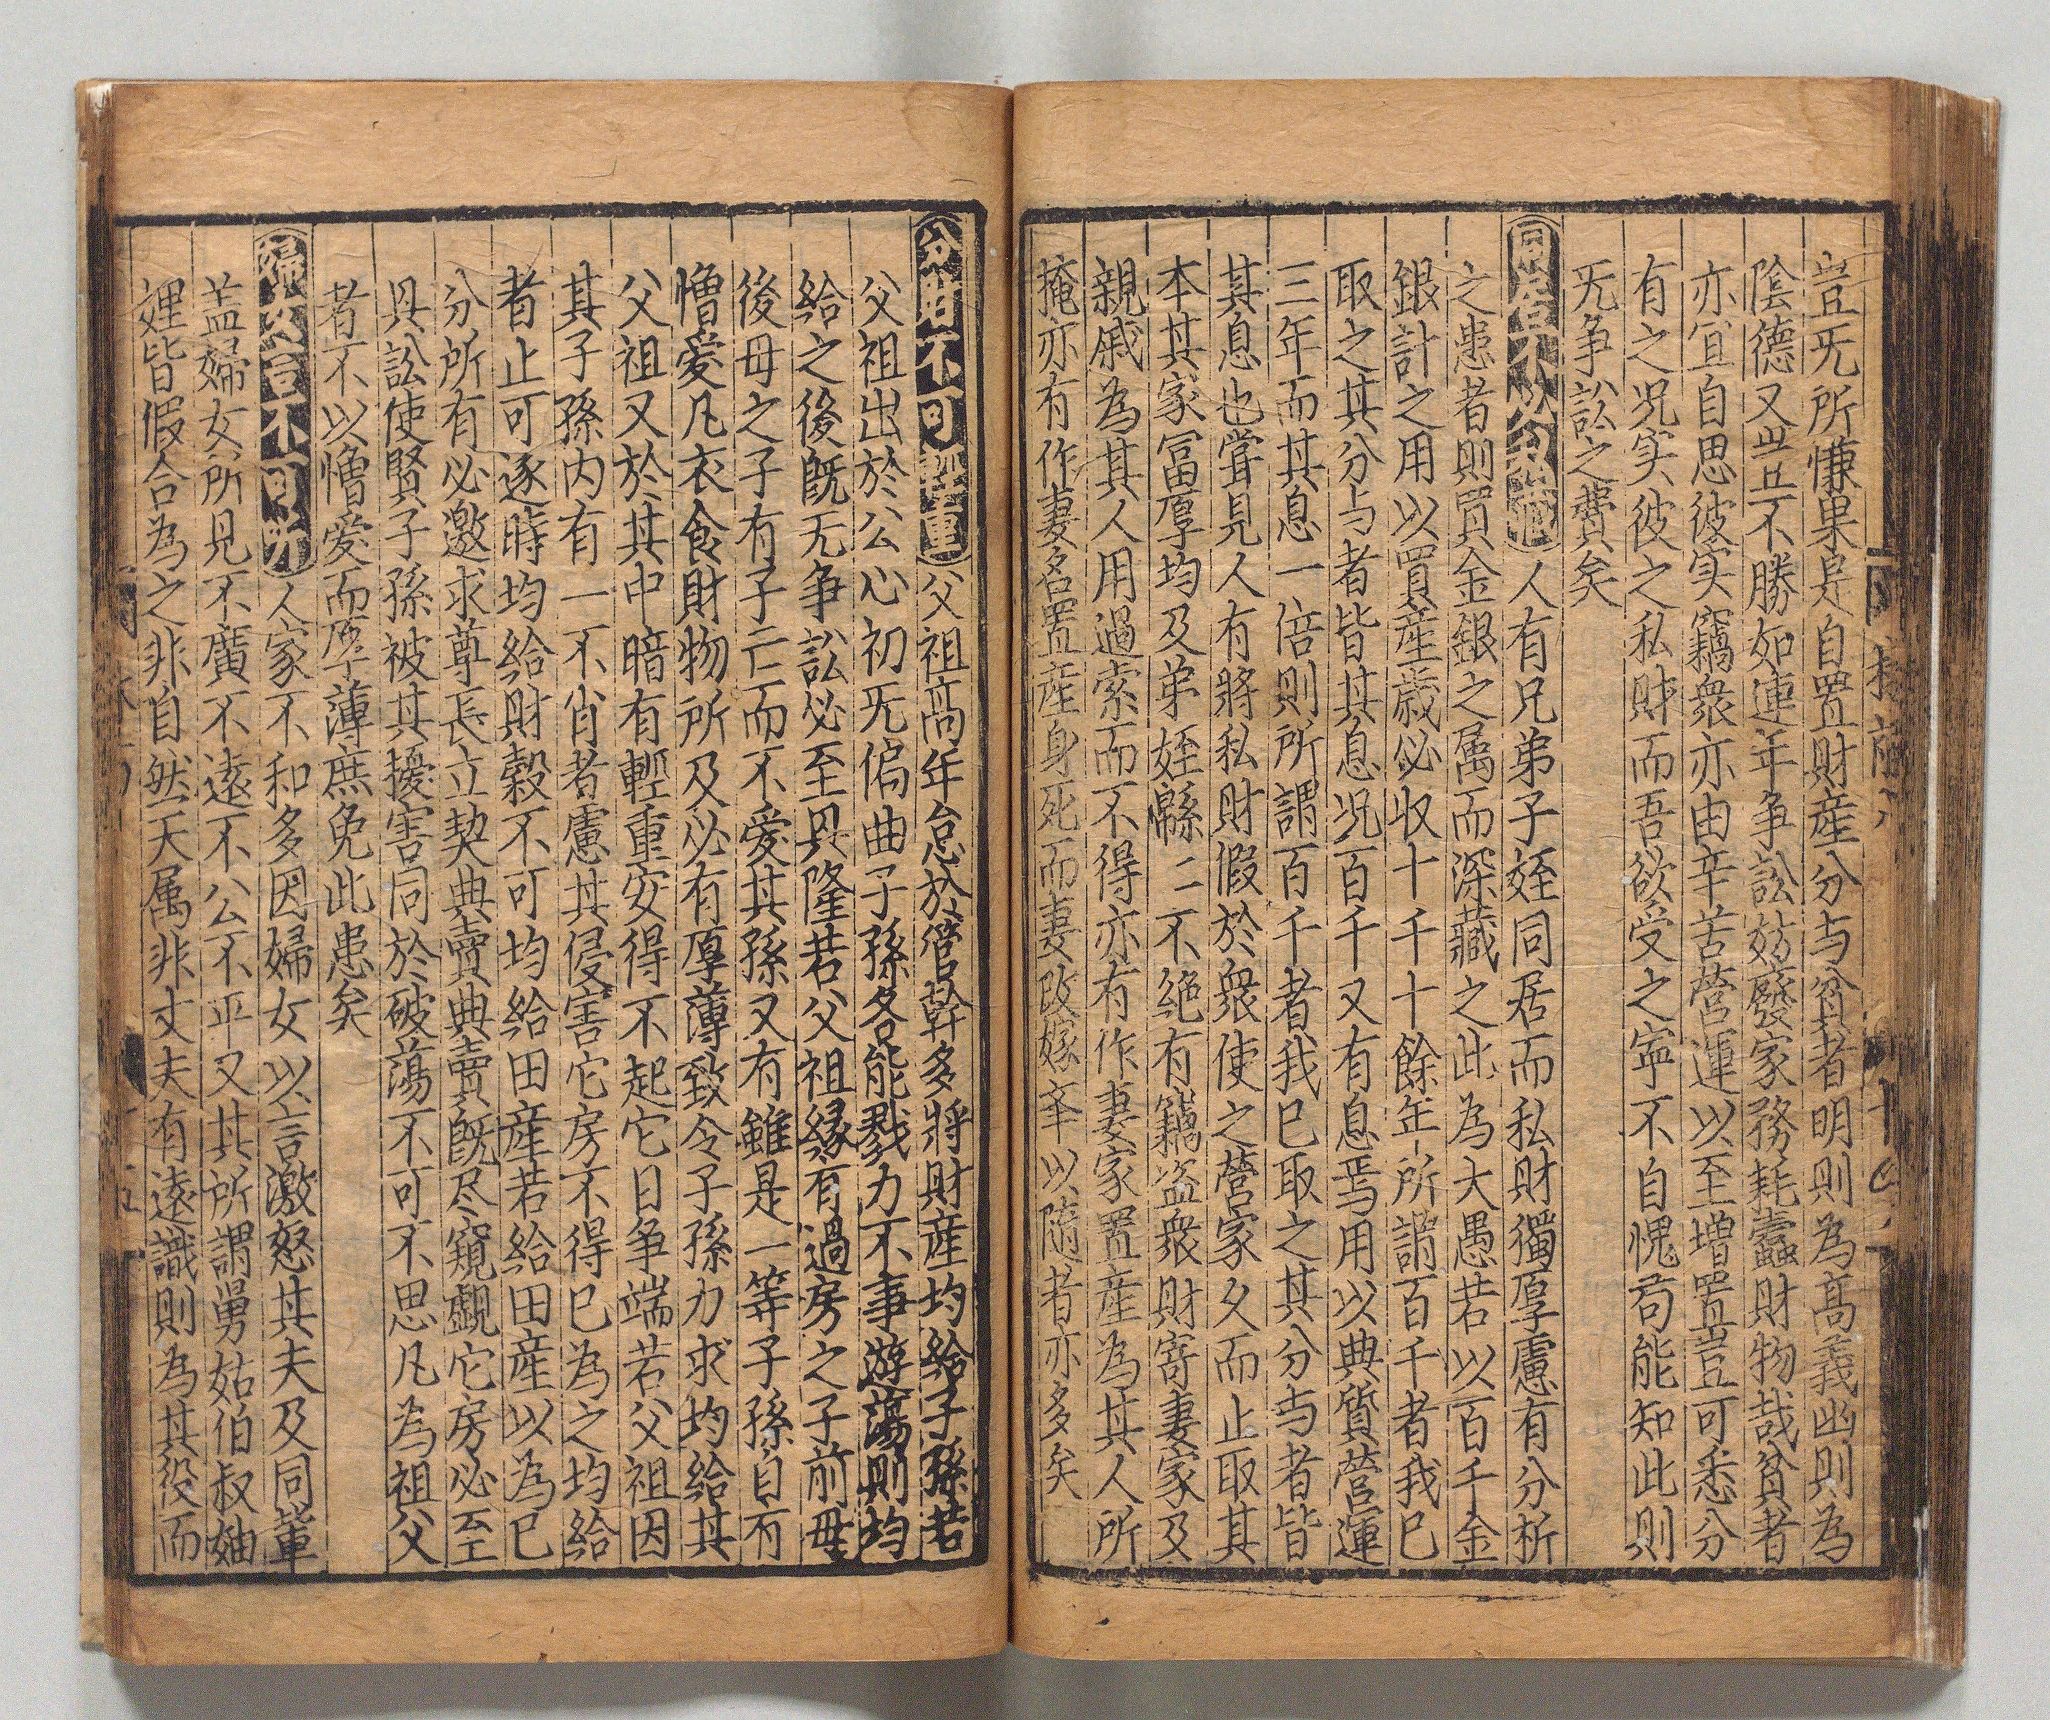 豈无所慊果是自置財産分与貧者明則為髙義幽則為
陰德又豈不勝如連年争訟妨廢家務耗蠹財物哉貧者
亦冝自思彼实竊衆亦由辛苦营運以至增置豈可悉分
有之况实彼之私財而吾欲受之寕不自愧苟能知此則
无争訟之費矣
同居不必私藏人有兄弟子姪同居而私財獨厚慮有分析
之患者則買金銀之属而深藏之此為大愚若以百千金
銀計之用以買産歳必収十千十餘年所謂百千者我已
取之其分与者皆其息况百千又有息焉用以典質营運
三年而其息一倍則所謂百千者我已取之其分与者皆
其息也甞見人有將私財假於衆使之营家久而止取其
本其家冨厚均及弟姪緜二不絶有竊盗衆財寄妻家及
親戚為其人用過索而不得亦有作妻家置産為其人所
掩亦有作妻名置産身死而妻改嫁㪯以隨者亦多矣
分財不可輕重父祖髙年怠於管幹多將財産均給子孫若
父祖出於公心初无偏曲子孫各能戮力不事遊蕩則均
給之後旣无争訟必至興隆若父祖縁有過房之子前毋
後毋之子有子亡而不愛其孫又有雖是一等子孫自有
憎愛凡衣食財物所及必有厚薄致令子孫力求均給其
父祖又於其中暗有輕重安得不起它日争端若父祖因
其子孫内有一不肖者慮其侵害它房不得已為之均給
者止可逐時均給財榖不可均給田産若給田産以為已
分所有必邀求尊長立契典賣典賣旣尽窺覷它房必至
興訟使賢子孫被其擾害同於破蕩不可不思凡為祖父
者不以憎愛而厚薄庶免此患矣
婦女言不可听人家不和多因婦女以言激怒其夫及同輩
盖婦女所見不廣不逺不公不平又其所謂舅姑伯叔妯
娌皆假合為之非自然天属非丈夫有逺識則為其役而